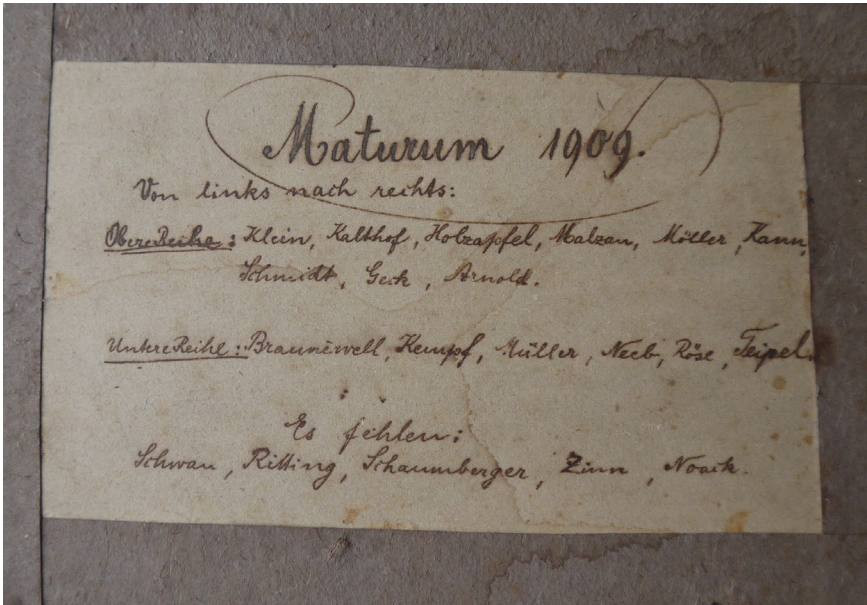 Maturum 1909.
Von links nach rechts:
Obere Reihe: Klein, Kalthof, Holzapfel, Malzan, Möller, Kann,
Schmidt, Geck, Arnold.
Untere Reihe: Braunewell, Kempf, Müller, Neeb, Röse, Teipel.
Es fehlen:
Schwan, Ritting, Schaumberger, Zinn, Noack.